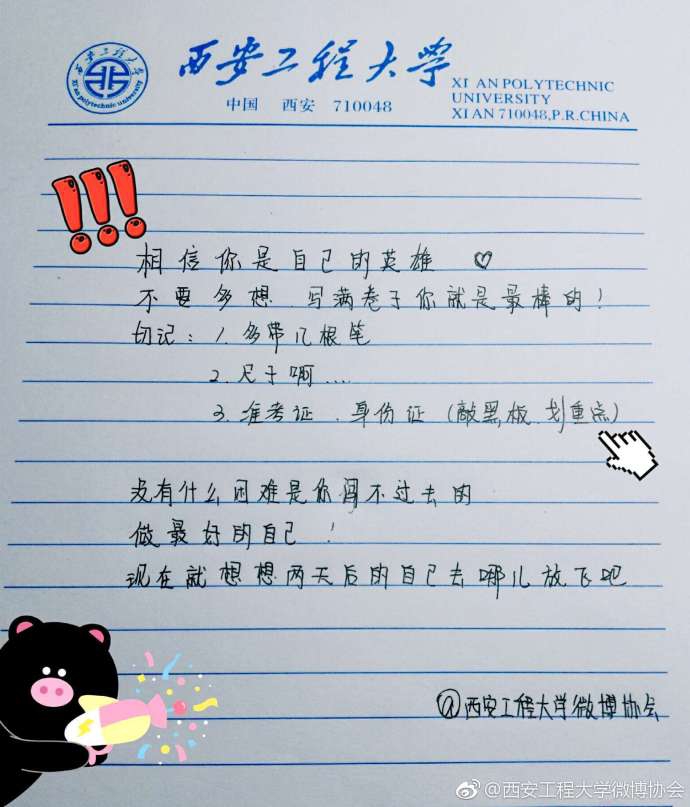 西安工程大学
XI'AN POLYTECHNIC UNIVERSITY
西安工程大学
中国 西安 710048
XI AN POLYTECHNIC
UNIVERSITY
XI AN 710048,P.R.CHINA
相信你是自己的英雄 ♡
不要多想 写满卷子你就是最棒的!
切记: 1.多带几根笔
2.尺子啊....
3.准考证、身份证(敲黑板、划重点)
没有什么困难是你闯不过去的
做最好的自己!
现在就想想两天后的自己去哪儿放飞吧
@西安工程大学微博协会
@西安工程大学微博协会